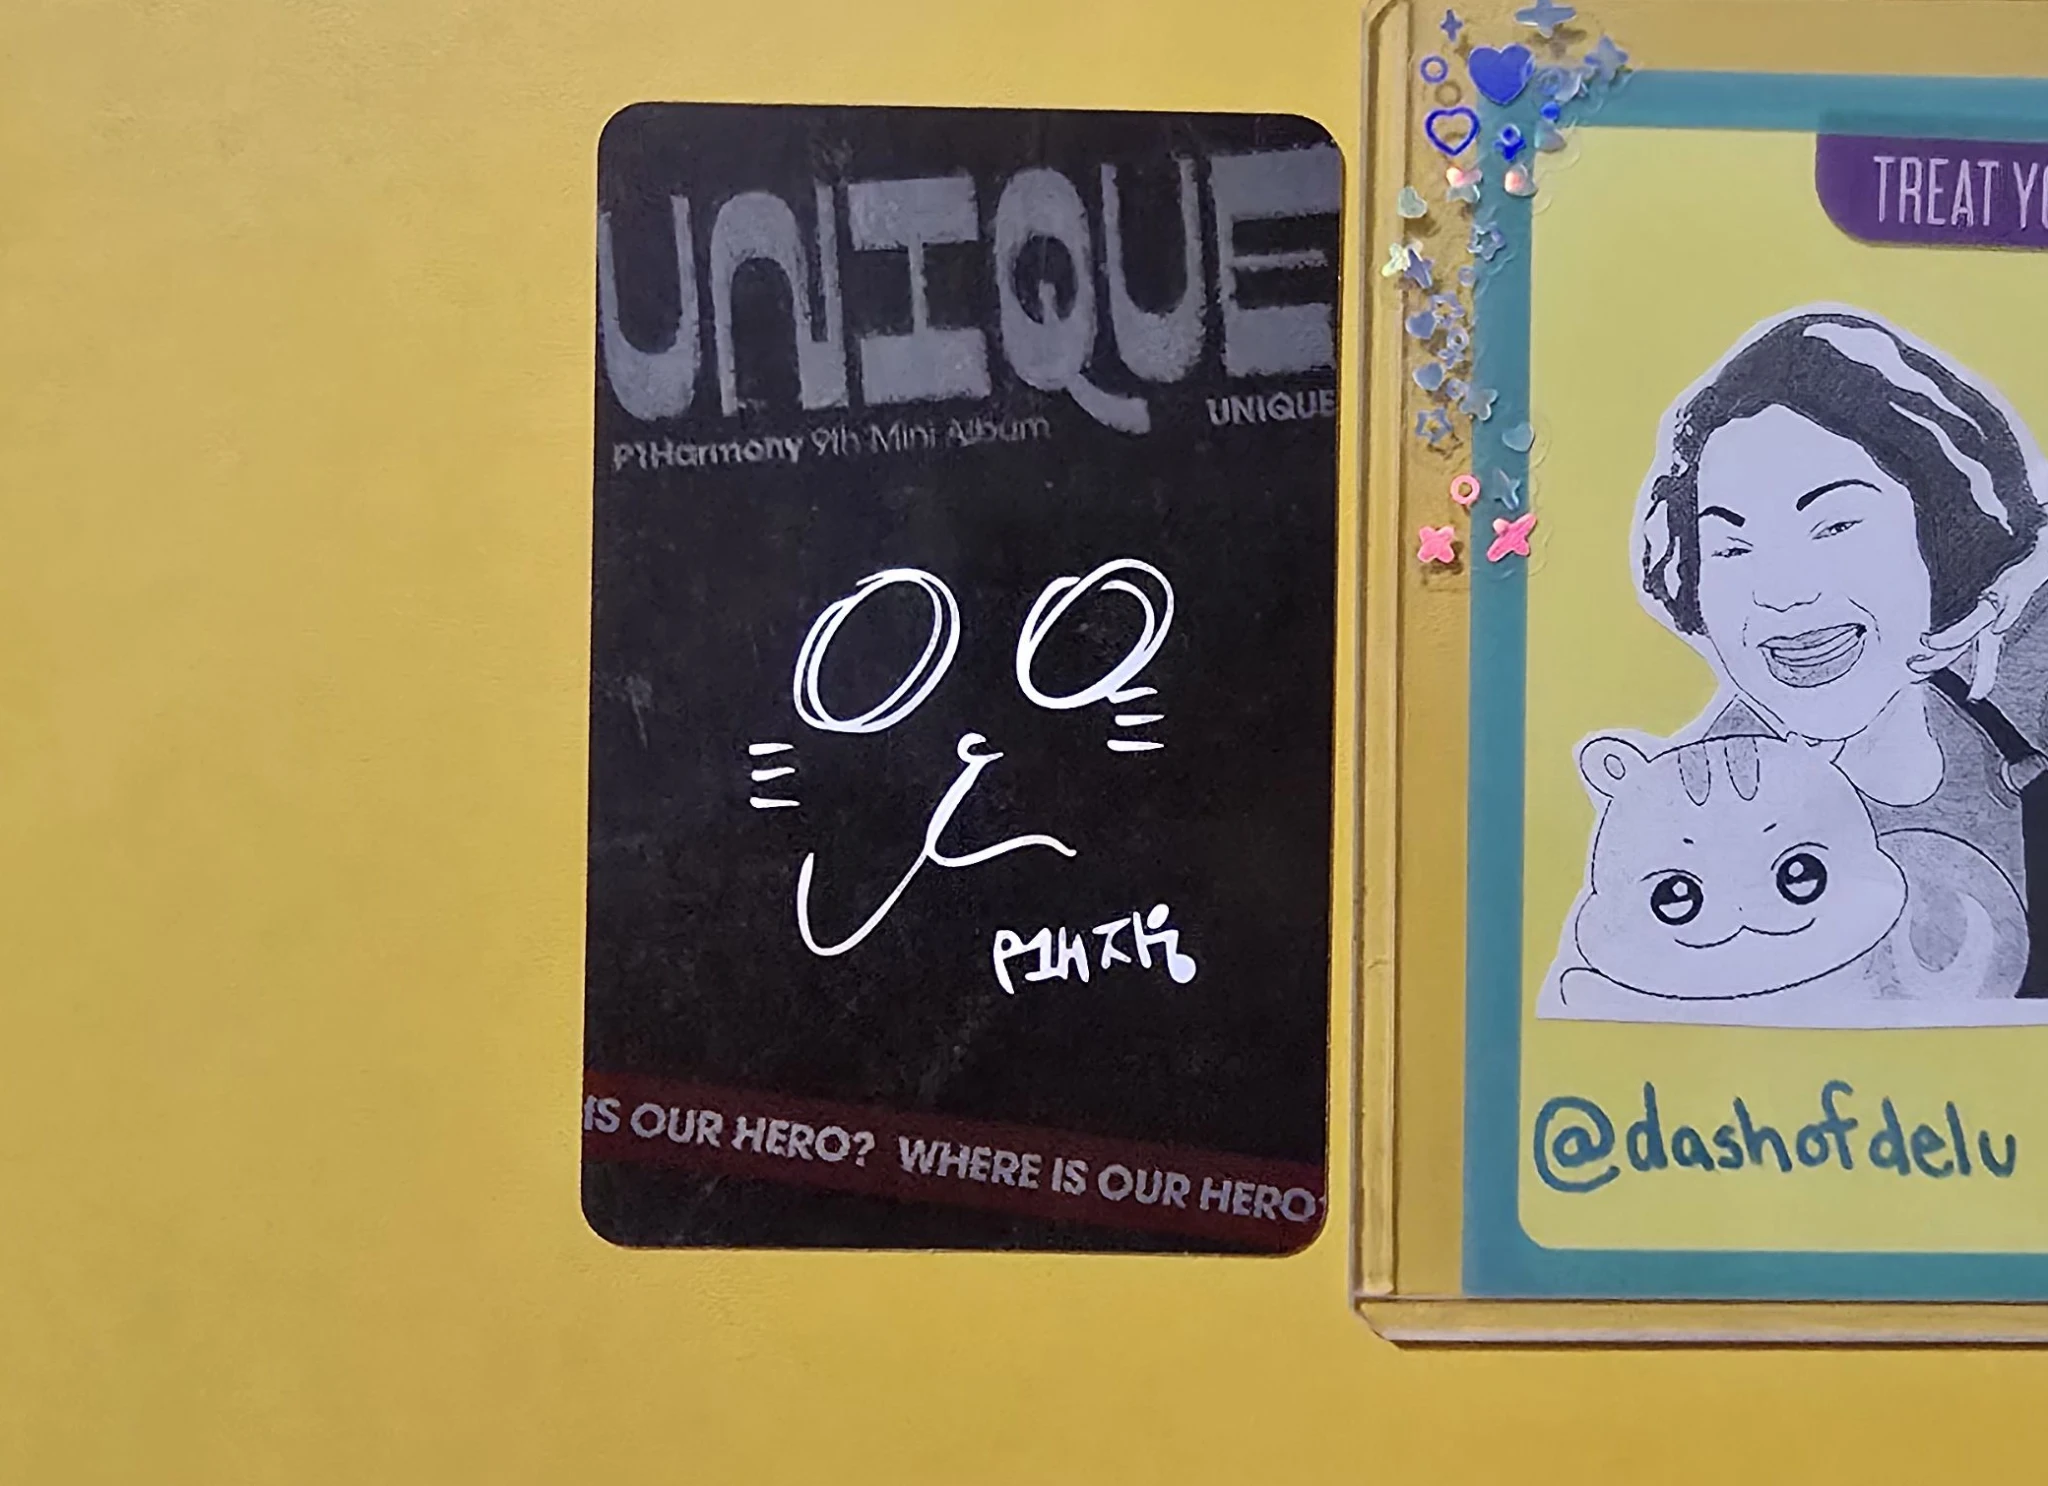 UNIQUE
P1Harmony 9th Mini Album
UNIQUE
P1H 지웅
IS OUR HERO? WHERE IS OUR HERO?
TREAT YO
@dashofdelu